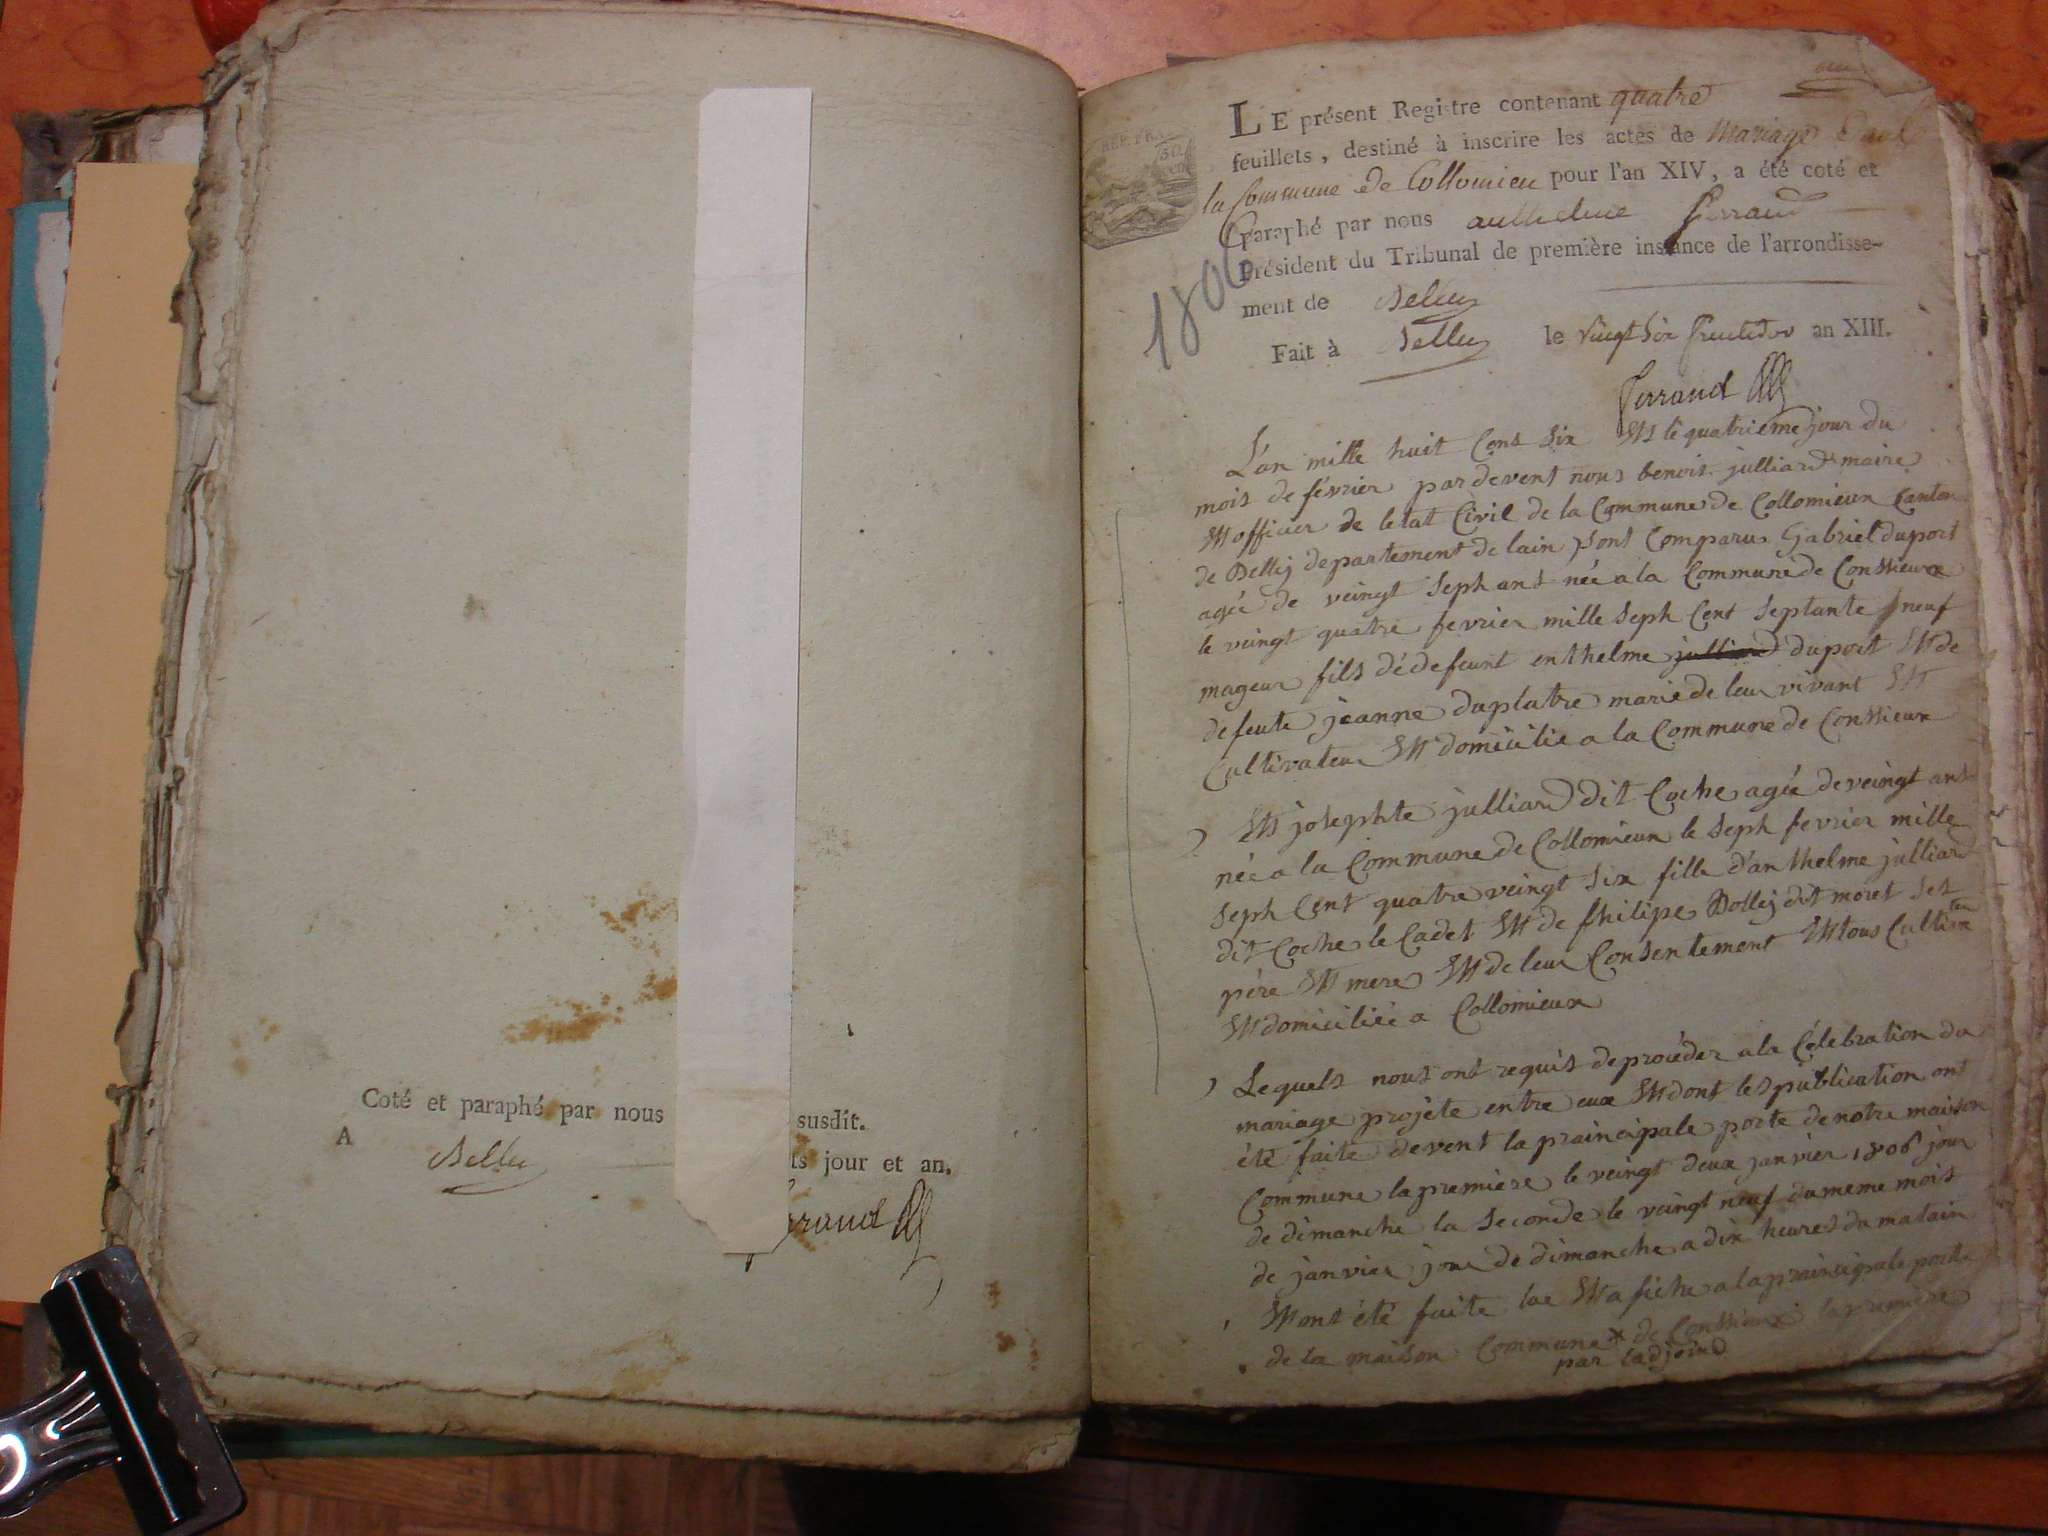 Coté et paraphé par nous susdit.
A Belley ts jour et an.
rraud
LE présent Registre contenant quatre
feuillets, destiné à inscrire les actes de Mariage
la Commune de Collomieu pour l'an XIV, a été coté et
paraphé par nous anthelme ferrand
Président du Tribunal de première instance de l'arrondisse-
ment de Belley
1806
Fait à Belley le vingt six fructidor an XIII.
ferrand
REP. FRA.
L'an mille huit Cent six et le quatrième jour du
mois de février par devent nous benoit julliard maire
et officier de letat Civil de la Commune de Collomieux Canton
de Belley departement de lain sont Comparus Gabriel duport
agée de veingt seph ans née a la Commune de Conssieux
le veingt quatre fevrier mille seph Cent septante neuf
mageur fils dé defeunt enthelme julliard duport et de
defeute jeanne duplatre marie de leur vivant et
Cultivateur et domicilie a la Commune de Conssieux
et josephte julliard dit Coche agée de veingt ans
née a la Commune de Collomieux le seph fevrier mille
seph Cent quatre veingt six fille d'anthelme julliard
dit Coche le Cadet et de philipe Bolley dit moret ses
père et mere et de leur Consentement et tous Cultiva teu
et domiciliée a Collomieux
Lequels nous ont requis de procéder a la Célébration du
mariage projète entre eux et dont les publication ont
été faite devent la prainsipale porte de notre maison
Commune la premiere le veingt deux janvier 1806 jour
de dimanche la seconde le veingt neuf du meme mois
de janvier jour de dimanche a dix heures du matain
et ont été faite lue et afiche a la prainsipale porte
de la maison Commune * de Conssieux la premiere
par ladjoind